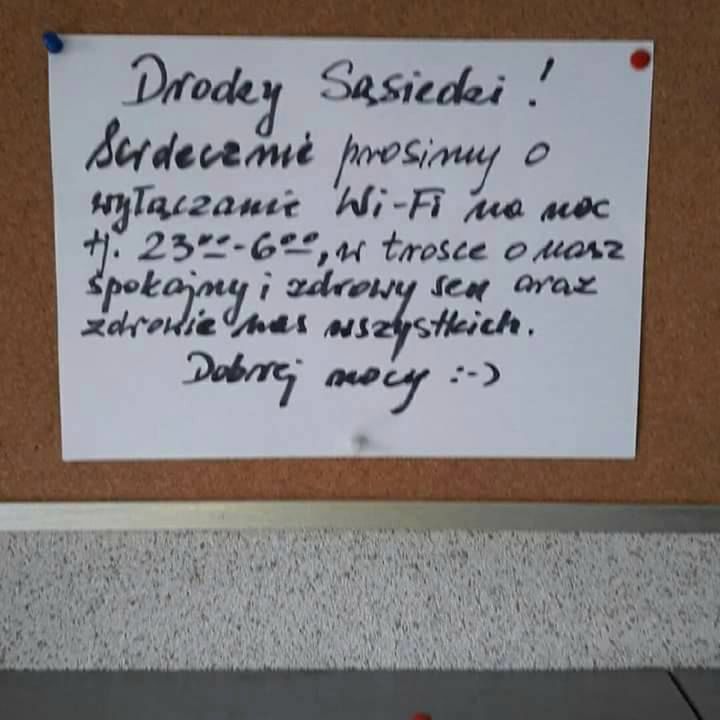 Drodzy Sąsiedzi!
Serdecznie prosimy o
wyłączanie Wi-Fi na noc
tj. 23⁰⁰-6⁰⁰, w trosce o nasz
spokojny i zdrowy sen oraz
zdrowie nas wszystkich.
Dobrej nocy :-)